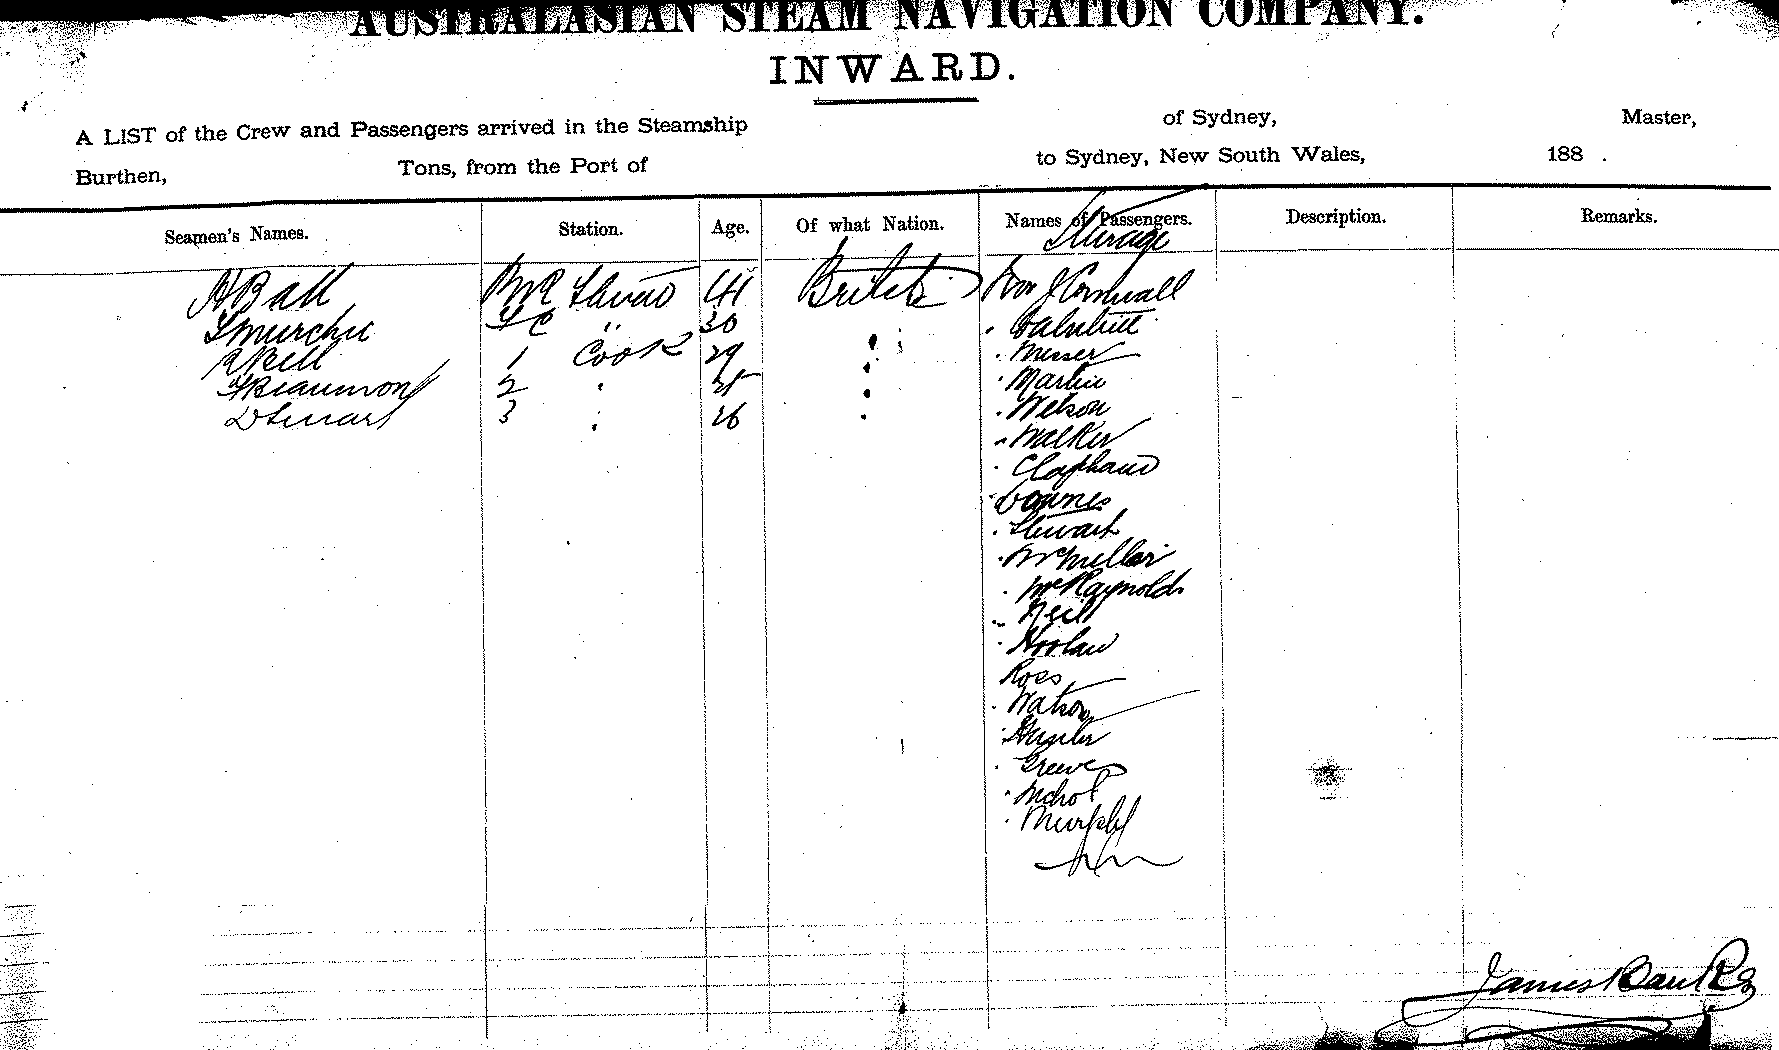 AUSTRALASIAN STEAM NAVIGATION COMPANY.
INWARD.
A LIST of the Crew and Passengers arrived in the Steamship of Sydney, Master,
Burthen, Tons, from the Port of to Sydney, New South Wales, 188 .
Seamen's Names. Station. Age. Of what Nation. Names of Passengers. Description. Remarks.
Steerage
H Ball 41 British Cornwall
30
1 Cook 29 Messer
F Beaumont 2 25 Martin
3 26 Wilson
Walker
Clapham
Downes
Stewart
McMillan
McRaynolds
Neill
Hoolan
Ross
Watson
Greeves
Nichol
Murphy
James Banks